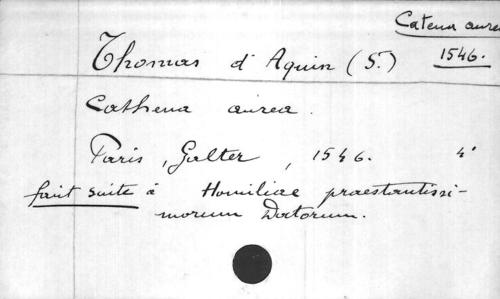 Catena aurea
1546.
Thomas d'Aquin (S.)
Cathena aurea.
Paris, Galter, 1546. 4°
fait suite à Homiliae praestantissi-
morum Doctorum.